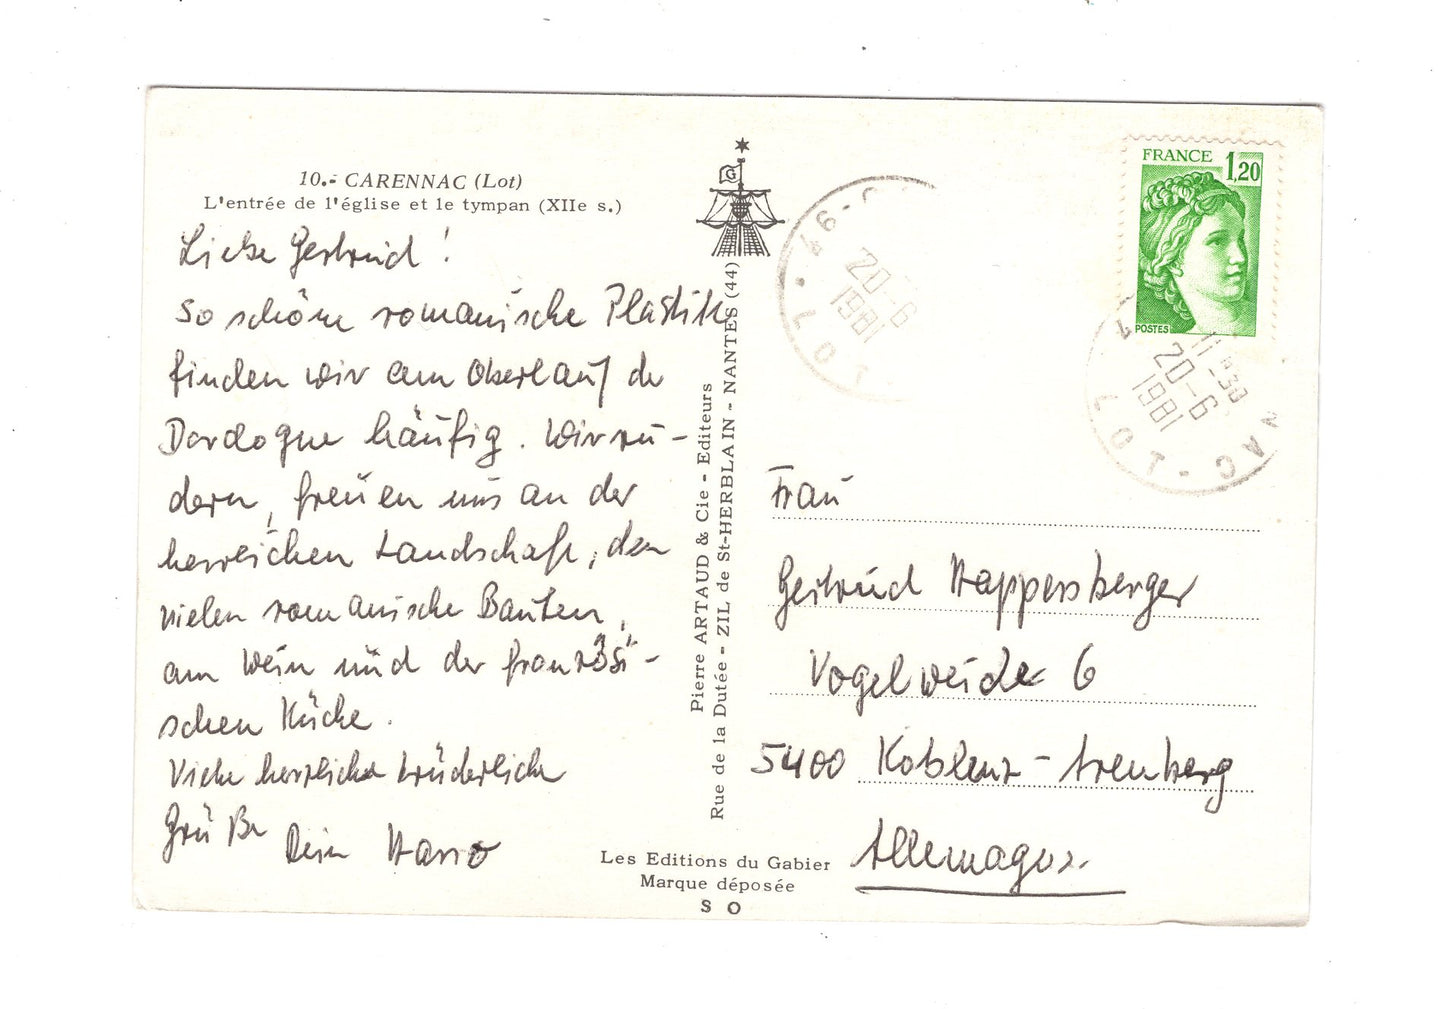 10.- CARENNAC (Lot)
L'entrée de l'église et le tympan (XIIe s.)
Liebe Gertrud!
so schöne romanische Plastik
finden wir am Oberlauf de
Dordogne häufig. Wir ru-
dern, freuen uns an der
herrlichen Landschaft, den
vielen romanische Bauten,
am Wein und der französi-
schen Küche.
Viele herzliche brüderliche
Grüße Dein Hasso
G
Pierre ARTAUD & Cie - Editeurs
Rue de la Dutée - ZIL de St-HERBLAIN - NANTES (44)
Les Editions du Gabier
Marque déposée
S O
FRANCE 1,20
POSTES
46-
20-6
1981
LOT
11 H 30
20-6
1981
NAC - LOT
Frau
Gertrud Happersberger
Vogelweide 6
5400 Koblenz-Arenberg
Allemagne